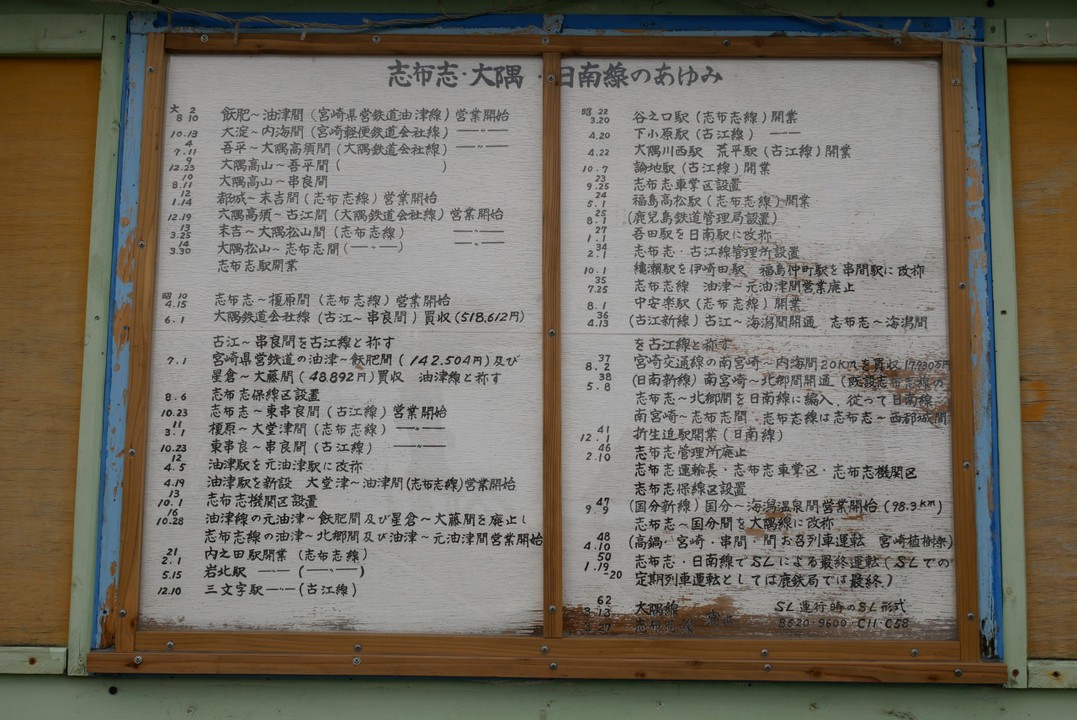 志布志・大隅・日南線のあゆみ
大 2 8 10 飫肥～油津間(宮崎県営鉄道油津線)営業開始
10.13 大淀～内海間(宮崎軽便鉄道会社線) ―〃―
4 7.11 吾平～大隅高須間(大隅鉄道会社線) ―〃―
9 12.23 大隅高山～吾平間(
10 8.11 大隅高山～串良間
12 1.14 都城～末吉間(志布志線)営業開始
12.19 大隅高須～古江間(大隅鉄道会社線)営業開始
13 3.25 末吉～大隅松山間(志布志線) ―〃―
14 3.30 大隅松山～志布志間(―〃―) ―〃―
志布志駅開業
昭 10 4.15 志布志～榎原間(志布志線)営業開始
6.1 大隅鉄道会社線(古江～串良間)買収(518,612円)
古江～串良間を古江線と称す
7.1 宮崎県営鉄道の油津～飫肥間(142.504円)及び
星倉～大藤間(48.892円)買収 油津線と称す
8.6 志布志保線区設置
10.23 志布志～東串良間(古江線)営業開始
11 3.1 榎原～大堂津間(志布志線) ―〃―
10.23 東串良～串良間(古江線) ―〃―
12 4.5 油津駅を元油津駅に改称
4.19 油津駅を新設 大堂津～油津間(志布志線)営業開始
13 10.1 志布志機関区設置
16 10.28 油津線の元油津～飫肥間及び星倉～大藤間を廃止し
志布志線の油津～北郷間及び油津～元油津間営業開始
21 2.1 内之田駅開業(志布志線)
5.15 岩北駅 ―〃― (―〃―)
12.10 三文字駅―〃―(古江線)
昭 22 3.20 谷之口駅(志布志線)開業
4.20 下小原駅(古江線) ―〃―
4.22 大隅川西駅 荒平駅(古江線)開業
10.7 論地駅(古江線)開業
23 9.25 志布志車掌区設置
24 5.1 福島高松駅(志布志線)開業
25 8.1 (鹿児島鉄道管理局設置)
27 1.1 吾田駅を日南駅に改称
34 2.1 志布志・古江線管理所設置
10.1 檍瀬駅を伊崎田駅 福島仲町駅を串間駅に改称
35 7.25 志布志線 油津～元油津間営業廃止
8.1 中安楽駅(志布志線)開業
36 4.13 (古江新線)古江～海潟間開通 志布志～海潟間
を古江線と称す
37 8.2 宮崎交通線の南宮崎～内海間20Kmを買収
38 5.8 (日南新線)南宮崎～北郷間開通(既設志布志線の
志布志～北郷間を日南線に編入、従って日南線
南宮崎～志布志間・志布志線は志布志～西都城間
41 12.1 折生迫駅開業(日南線)
46 2.10 志布志管理所廃止
志布志運輸長・志布志車掌区・志布志機関区
志布志保線区設置
47 9.9 (国分新線)国分～海潟温泉間営業開始(98.3km)
志布志～国分間を大隅線に改称
48 4.10 (高鍋・宮崎・串間・間お召列車運転 宮崎植樹祭)
50 1.19-20 志布志・日南線でSLによる最終運転(SLでの
定期列車運転としては鹿鉄局では最終)
62 3.13 大隅線 SL運行時のSL形式
3.27 志布志線 廃止 8620・9600・C11・C58